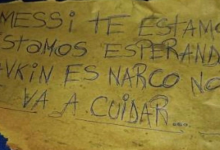 MESSI TE ESTAMO
ESTAMOS ESPERAND
AVKIN ES NARCO NO
VA A CUIDAR...